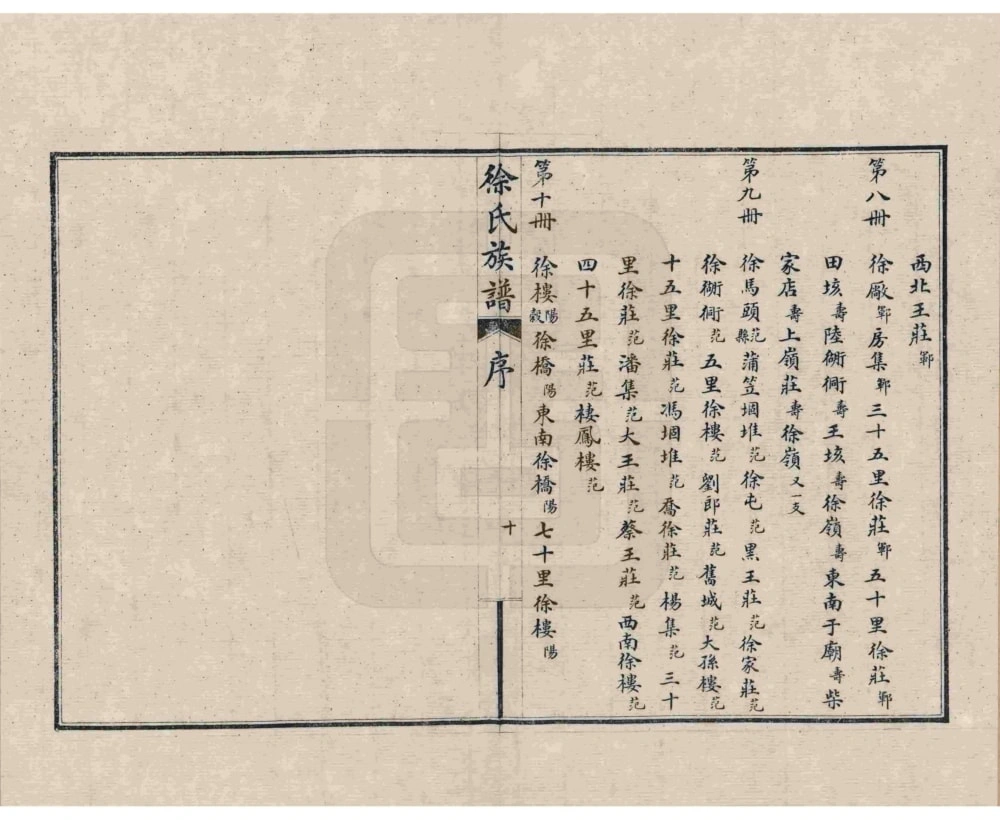 西北王莊鄆
第八冊　徐廠鄆房集鄆三十五里徐莊鄆五十里徐莊鄆
田垓壽陸衚衕壽王垓壽徐嶺壽東南于廟壽柴
家店壽上嶺莊壽徐嶺又一支
第九冊　徐馬頭范縣蒲笠堌堆范徐屯范黑王莊范徐家莊范
徐衚衕范五里徐樓范劉郎莊范舊城范大孫樓范
十五里徐莊范馮堌堆范喬徐莊范楊集范三十
里徐莊范潘集范大王莊范蔡王莊范西南徐樓范
四十五里莊范棲鳳樓范
第十冊　徐樓陽穀徐橋陽東南徐橋陽七十里徐樓陽
徐氏族譜　序　十